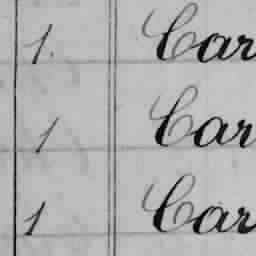 1. Car
1 Car
1 Car